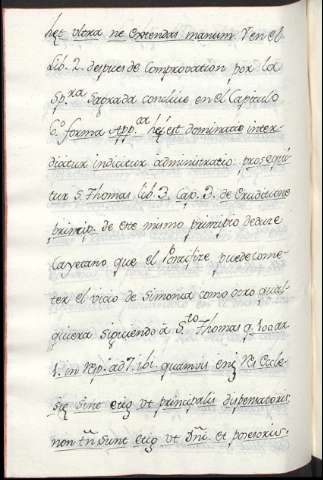 heç vltra ne extendas manum. Y en el
Lib. 2. despues de Comprovation por la
Sp.ra Sagrada concluie en el Capitulo
6.º forma App.ca heç est dominatio inter-
dicitur indicitur administratio: prosequi-
tur S. Thomas lib. 3. Cap. 3. de Eruditione
princip. de este mismo principio deduce
Cayetano que el Pontifize puede come-
ter el vicio de Simonia como otro qual-
quiera siguiendo à S.to Thomas q. 100 ar.
1. in Rp. ad 7. ibi. quamvis enim Res Eccle-
się sint eius vt principalis dispensatoris
non tñ sunt eius vt Dñi. et posesoris.